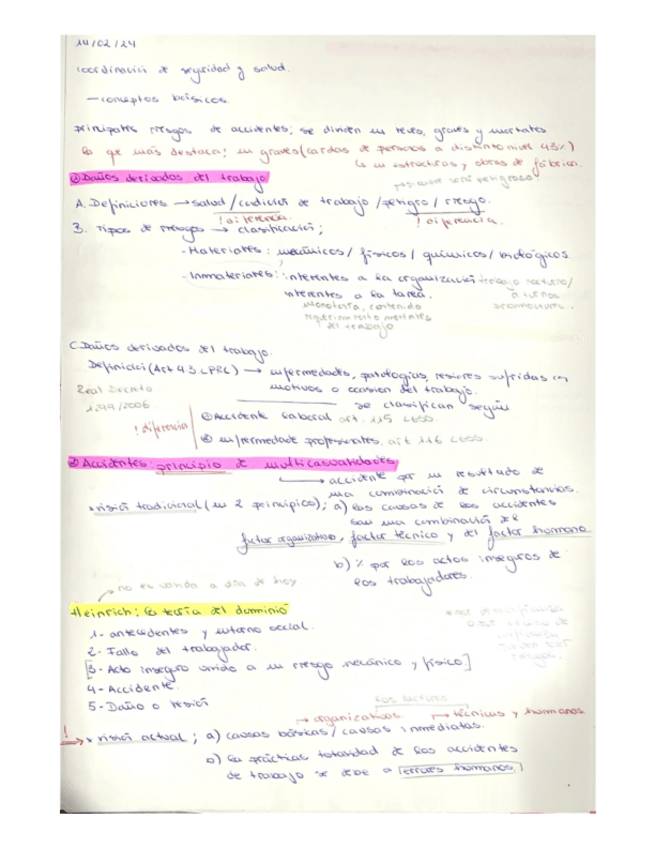 14/02/24
coordinación de seguridad y salud.
— conceptos básicos.
principales riesgos de accidentes; se dividen en leves, graves y mortales
lo que más destaca: en graves (caídas de personas a distinto nivel 43%)
en estructuras y obras de fábrica.
① Daños derivados del trabajo
A. Definiciones → salud / condición de trabajo / peligro / riesgo.
! diferencia. ! diferencia.
B. Tipos de riesgos → clasificación;
- Materiales: mecánicos / físicos / químicos / biológicos.
- Inmateriales: inherentes a la organización trabajo nocturno/
inherentes a la tarea. a turnos
monotonía, contenido
requerimiento mentales
del trabajo
C. Daños derivados del trabajo.
Definición (Art 4.3. LPRL) → enfermedades, patologías, lesiones sufridas con
motivos o ocasión del trabajo.
Real Decreto
1299/2006
se clasifican según
! diferencia
① Accidente laboral art. 115 LGSS.
② enfermedade profesionales. art 116 LGSS.
② Accidentes: principio de multicausalidades
→ accidente por un resultado de
una combinación de circunstancias.
* visión tradicional (en 2 principios); a) las causas de los accidentes
son una combinación del
factor organizativo, factor técnico y del factor humano
b) % por los actos inseguros de
los trabajadores.
no es válida a día de hoy
Heinrich: la teoría del dominió
1- antecedentes y entorno social.
2- Fallo del trabajador.
[3- Acto inseguro unido a un riesgo mecánico y físico]
4- Accidente.
5- Daño o lesión
los factores
→ organizativos. → técnicas y humanos.
! → * visión actual; a) causas básicas / causas inmediatas.
b) la prácticas totalidad de los accidentes
de trabajo se debe a errores humanos.